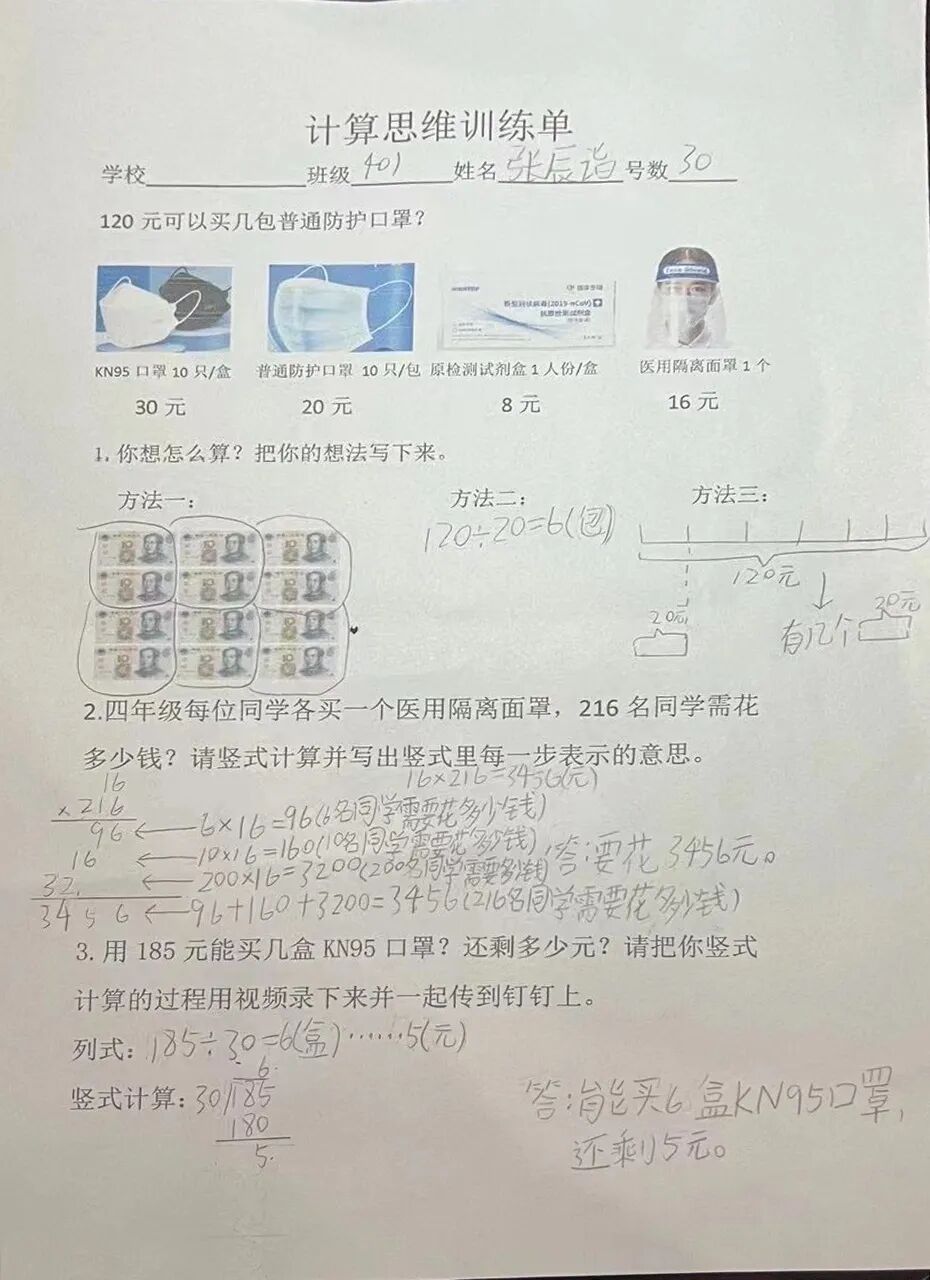 计算思维训练单
学校 班级 401 姓名 张辰诣 号数 30
120 元可以买几包普通防护口罩？
新型冠状病毒(2019-nCoV)
抗原检测试剂盒
KN95 口罩 10 只/盒 普通防护口罩 10 只/包 原检测试剂盒 1 人份/盒 医用隔离面罩 1 个
30 元 20 元 8 元 16 元
1. 你想怎么算？把你的想法写下来。
方法一： 方法二： 方法三：
120÷20=6(包)
120元
20元
有几个 30元
2.四年级每位同学各买一个医用隔离面罩，216 名同学需花
多少钱？请竖式计算并写出竖式里每一步表示的意思。
16×216=3456(元)
16
×216
96 ← 6×16=96(6名同学需要花多少钱)
16 ← 10×16=160(10名同学需要花多少钱)
32 ← 200×16=3200(200名同学需要多少钱)
3456 ← 96+160+3200=3456(216名同学需要花多少钱)
答:要花3456元。
3. 用 185 元能买几盒 KN95 口罩？还剩多少元？请把你竖式
计算的过程用视频录下来并一起传到钉钉上。
列式：185÷30=6(盒)……5(元)
6
竖式计算：30 185
180
5
答:能买6盒KN95口罩,
还剩5元。